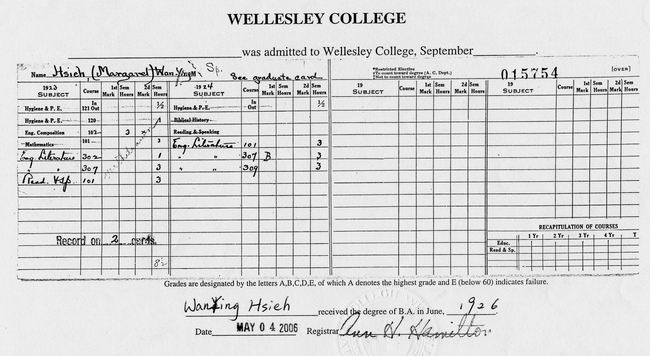 WELLESLEY COLLEGE
was admitted to Wellesley College, September
Name Hsieh, (Margaret) Wan-Ying M. Sp.
See graduate card
*Restricted Elective
†To count toward degree (A. C. Dept.)
‡Not to count toward degree
015754
[OVER]
1923 SUBJECT Course 1st Sem Mark Hours 2d Sem Mark Hours
1924 SUBJECT Course 1st Sem Mark Hours 2d Sem Mark Hours
19 SUBJECT Course 1st Sem Mark Hours 2d Sem Mark Hours
19 SUBJECT Course 1st Sem Mark Hours 2d Sem Mark Hours
Hygiene & P. E. In 121 Out ½
Hygiene & P. E. In Out ½
Hygiene & P. E. 120
Biblical History
Eng. Composition 102 3
Reading & Speaking
Mathematics 101 3
Eng. Literature 101 3
Eng. Literature 302 1
" " 307 B 3
" 307 3
" " 309 3
Read. & Sp. 101 3
RECAPITULATION OF COURSES
1 Yr 2 Yr 3 Yr 4 Yr T
Educ.
Read & Sp.
Record on 2 cards.
8½
Grades are designated by the letters A,B,C,D,E, of which A denotes the highest grade and E (below 60) indicates failure.
WanYing Hsieh received the degree of B.A. in June, 1926
Date MAY 04 2006 Registrar Ann H. Hamilton